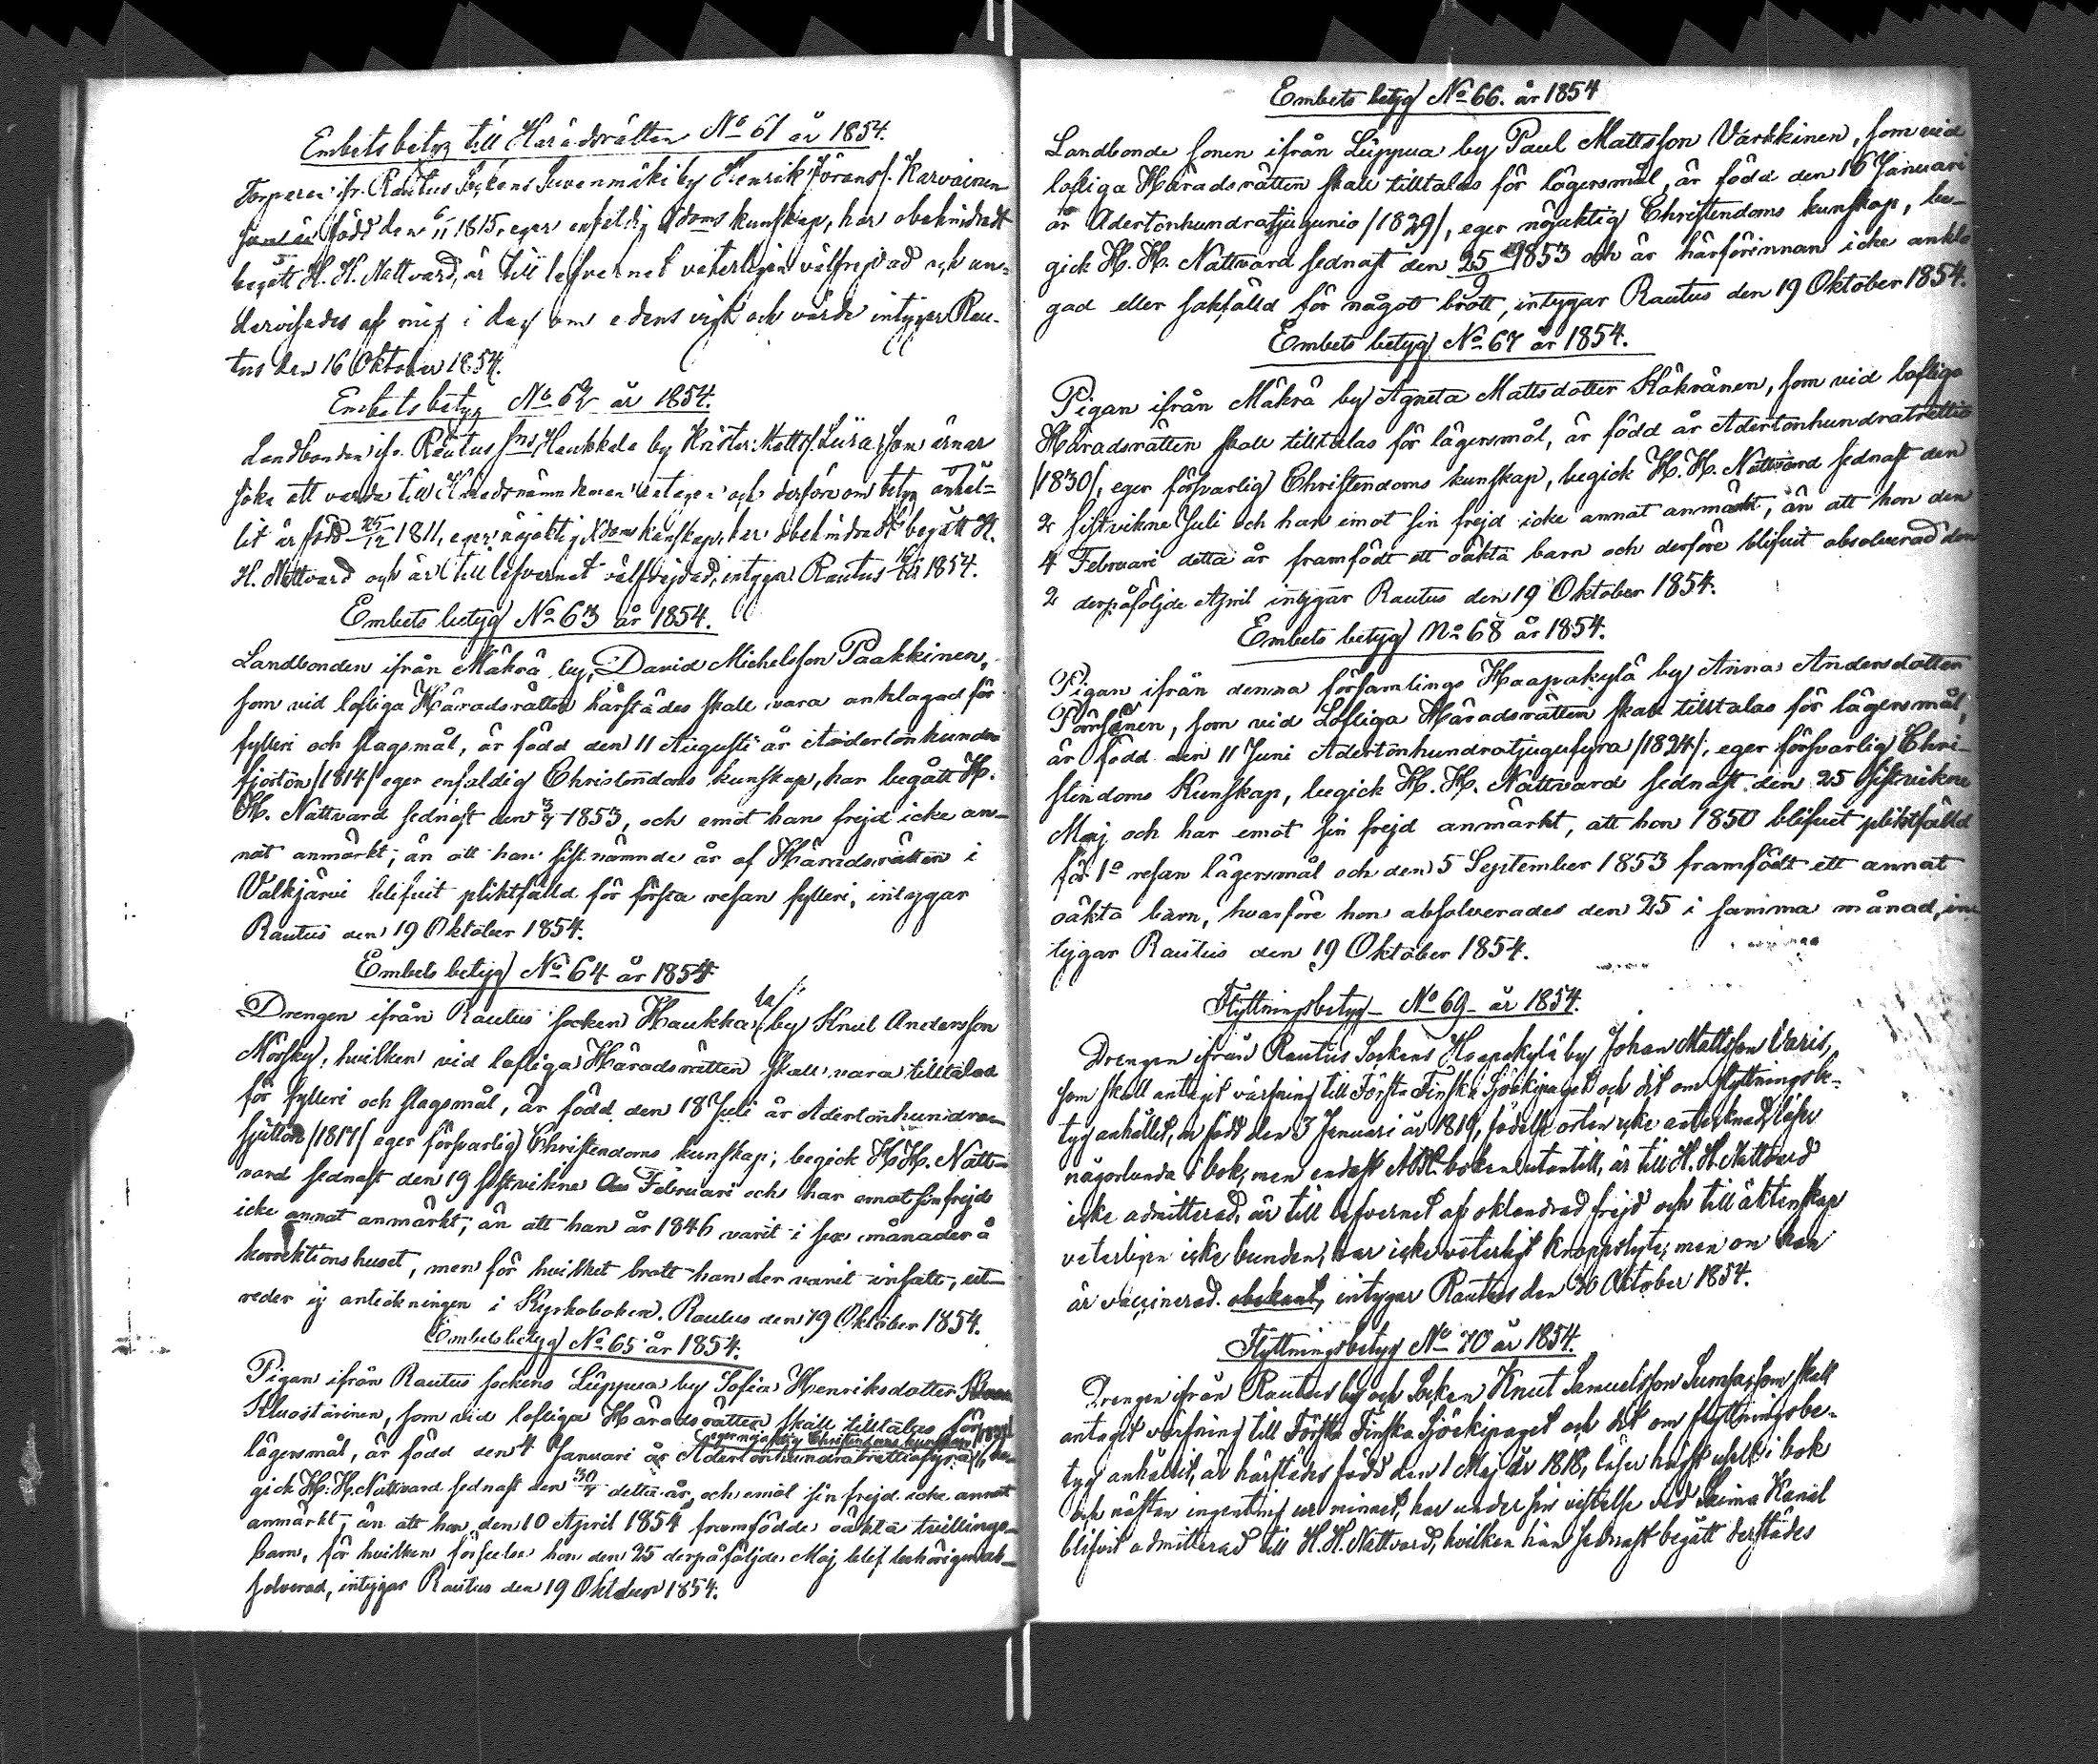 Embetsbetyg till Häradsrätten No 61 år 1854.
Torparen ifr. Rautus Sockens Suvenmäki by Henrik Göranss. Karvainen
som är född den 6/11 1815, eger enfaldig Xdoms kunskap, har obehindradt
begått H. H. Nattvard, är till lefvernet veterligen välfrejdad och un-
dervisades af mig i dag om edens vigt och värde intygar Rau-
tus den 16 Oktober 1854.
Embetsbetyg No 62 år 1854.
Landbonden ifr. Rautus sns Haukkala by Krister Mattss. Liira, som ärnar
söka att varda till Häradsnämndeman antagen och derföre om betyg anhål-
lit är född 25/12 1811, eger nöjaktig Xdoms kunskap, har obehindradt begått H.
H. Nattvard och är till lefvernet välfrejdad, intygar Rautus 1854.
Embets betyg No 63 år 1854.
Landbonden ifrån Mäkrä by, David Michelsson Paakkinen,
som vid lofliga Häradsrätten härstädes skall vara anklagad för
fylleri och slagsmål, är född den 11 Augusti år Adertonhundra
fjorton /1814/ eger enfaldig Christendoms kunskap, har begått H.
H. Nattvard sednast den 3/7 1853, och emot hans frejd icke an-
nat anmärkt, än att han sistnämnde år af Häradsrätten i
Valkjärvi blifvit pliktfälld för första resan fylleri, intygar
Rautus den 19 Oktober 1854.
Embets betyg No 64 år 1854
Drengen ifrån Rautus socken Haukka la by Knut Andersson
Mörsky, hvilken vid lofliga Häradsrätten skall vara tilltalad
för fylleri och slagsmål, är född den 18 Juli år Adertonhundra-
sjutton /1817/ eger försvarlig Christendoms kunskap, begick H.H. Natt-
vard sednast den 19 sistvikne Februari och har emot sin frejd
icke annat anmärkt, än att han år 1846 varit i sex månader å
korrektionshuset, men för hvilket brott han der varit insatt, ut-
reder ej anteckningen i Kyrkoboken. Rautus den 19 Oktober 1854.
Embetsbetyg No 65 år 1854.
Pigan ifrån Rautus sockens Liippua by Sofia Henriksdotter
Kluostarinen, som vid lofliga Häradsrätten skall tilltalas för
eger nöjaktig Christendoms kunskap /1834/
lägersmål, är född den 4 Januari år Adertonhundratrettiofyra, be-
gick H. H. Nattvard sednast den detta år, och emot sin frejd icke annat
anmärkt, än att hon den 10 April 1854 framfödde oäkta tvillings-
barn, för hvilken förseelse hon den 25 derpåföljde Maj blef behörigen ab-
solverad, intygar Rautus den 19 Oktober 1854.
Embets betyg No 66. år 1854
Landbonde sonen ifrån Liippua by Paul Mattsson Värkkinen, som vid
lofliga Häradsrätten skall tilltalas för lägersmål, är född den 16 Januari
år Adertonhundratjugunio /1829/, eger nöjaktig Christendoms kunskap, be-
gick H. H. Nattvard sednast den 25 1853 och är härförinnan icke ankla
gad eller sakfälld för något brott, intygar Rautus den 19 Oktober 1854.
Embets betyg No 67 år 1854.
Pigan ifrån Mäkrä by Agneta Mattsdotter Käkränen, som vid lofliga
Häradsrätten skall tilltalas för lägersmål, är född år Adertonhundratrettio
/1830/, eger försvarlig Christendoms kunskap, begick H. H. Nattvard sednast den
2 sistvikne Juli och har emot sin frejd icke annat anmärkt, än att hon den
4 Februari detta år framfödt ett oäkta barn och derföre blifvit absolverad den
2 derpåföljde April intygar Rautus den 19 Oktober 1854.
Embets betyg No 68 år 1854.
Pigan ifrån denna församlings Haapakylä by Anna Andersdotter
Törösinen, som vid Lofliga Häradsrätten skall tilltalas för lägersmål,
är född den 11 Juni Adertonhundratjugufyra /1824/, eger försvarlig Chri-
stendoms Kunskap, begick H. H. Nattvard sednast den 25 sistvikne
Maj och har emot sin frejd anmärkt, att hon 1850 blifvit pliktfälld
för 1o resan lägersmål och den 5 September 1853 framfödt ett annat
oäkta barn, hvarföre hon absolverades den 25 i samma månad, in
tygar Rautus den 19 Oktober 1854.
Flyttningsbetyg No 69 år 1854.
Drengen ifrån Rautus Sockens Haapakylä by Johan Mattsson Varis,
som skall antagit värfning till Första Finska Sjöekipaget och dit om flyttningsbe-
tyg anhållit, är född den 3 Januari år 1819, födelse orten icke antecknad, läser
någorlunda i bok, men endast ABC-boken utantill, är till H. H. Nattvard
icke admitterad, är till lefvernet af oklandrad frejd och till äktenskap
veterligen icke bunden, har icke veterligt kroppslyte, men om han
är vaccinerad obekant, intygar Rautus den 30 Oktober 1854.
Flyttningsbetyg No 70 år 1854.
Drengen ifrån Rautus by och Socken Knut Samuelsson Sumpas som skall
antagit värfning till Första Finska Sjöekipaget och dit om flyttningsbe-
tyg anhållit, är härstädes född den 1 Maj år 1818, läser högst uselt i bok
och nästan ingenting ur minnet, har under sin vistelse vid Saima Kanal
blifvit admitterad till H. H. Nattvard, hvilken han sednast begått derstädes